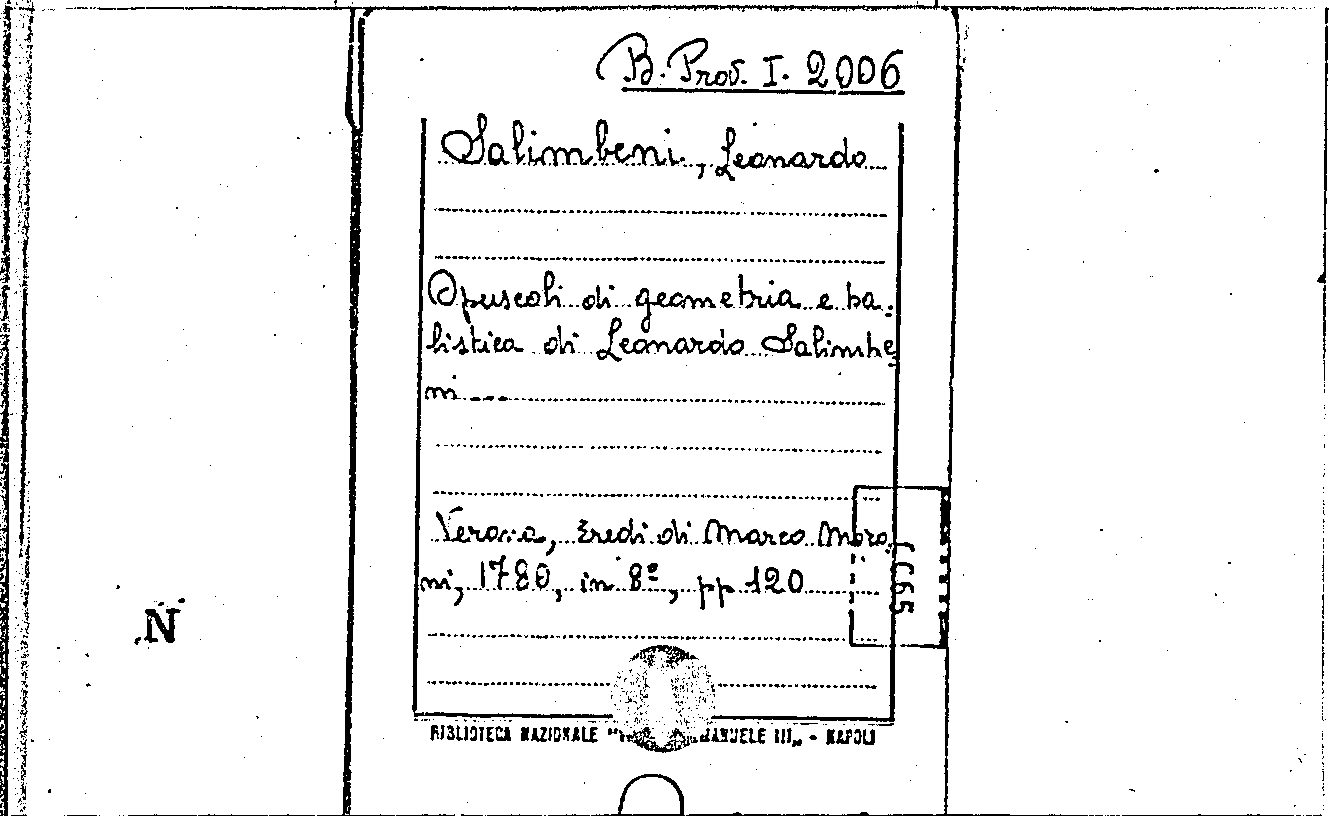 B. Prov. I. 2006
Salimbeni, Leonardo
Opuscoli di geometria e ba-
listica di Leonardo Salimbe
ni ---
Verona, Eredi di Marco Moro
ni, 1780, in 8º, pp 120
N
BIBLIOTECA NAZIONALE III,, - NAPOLI